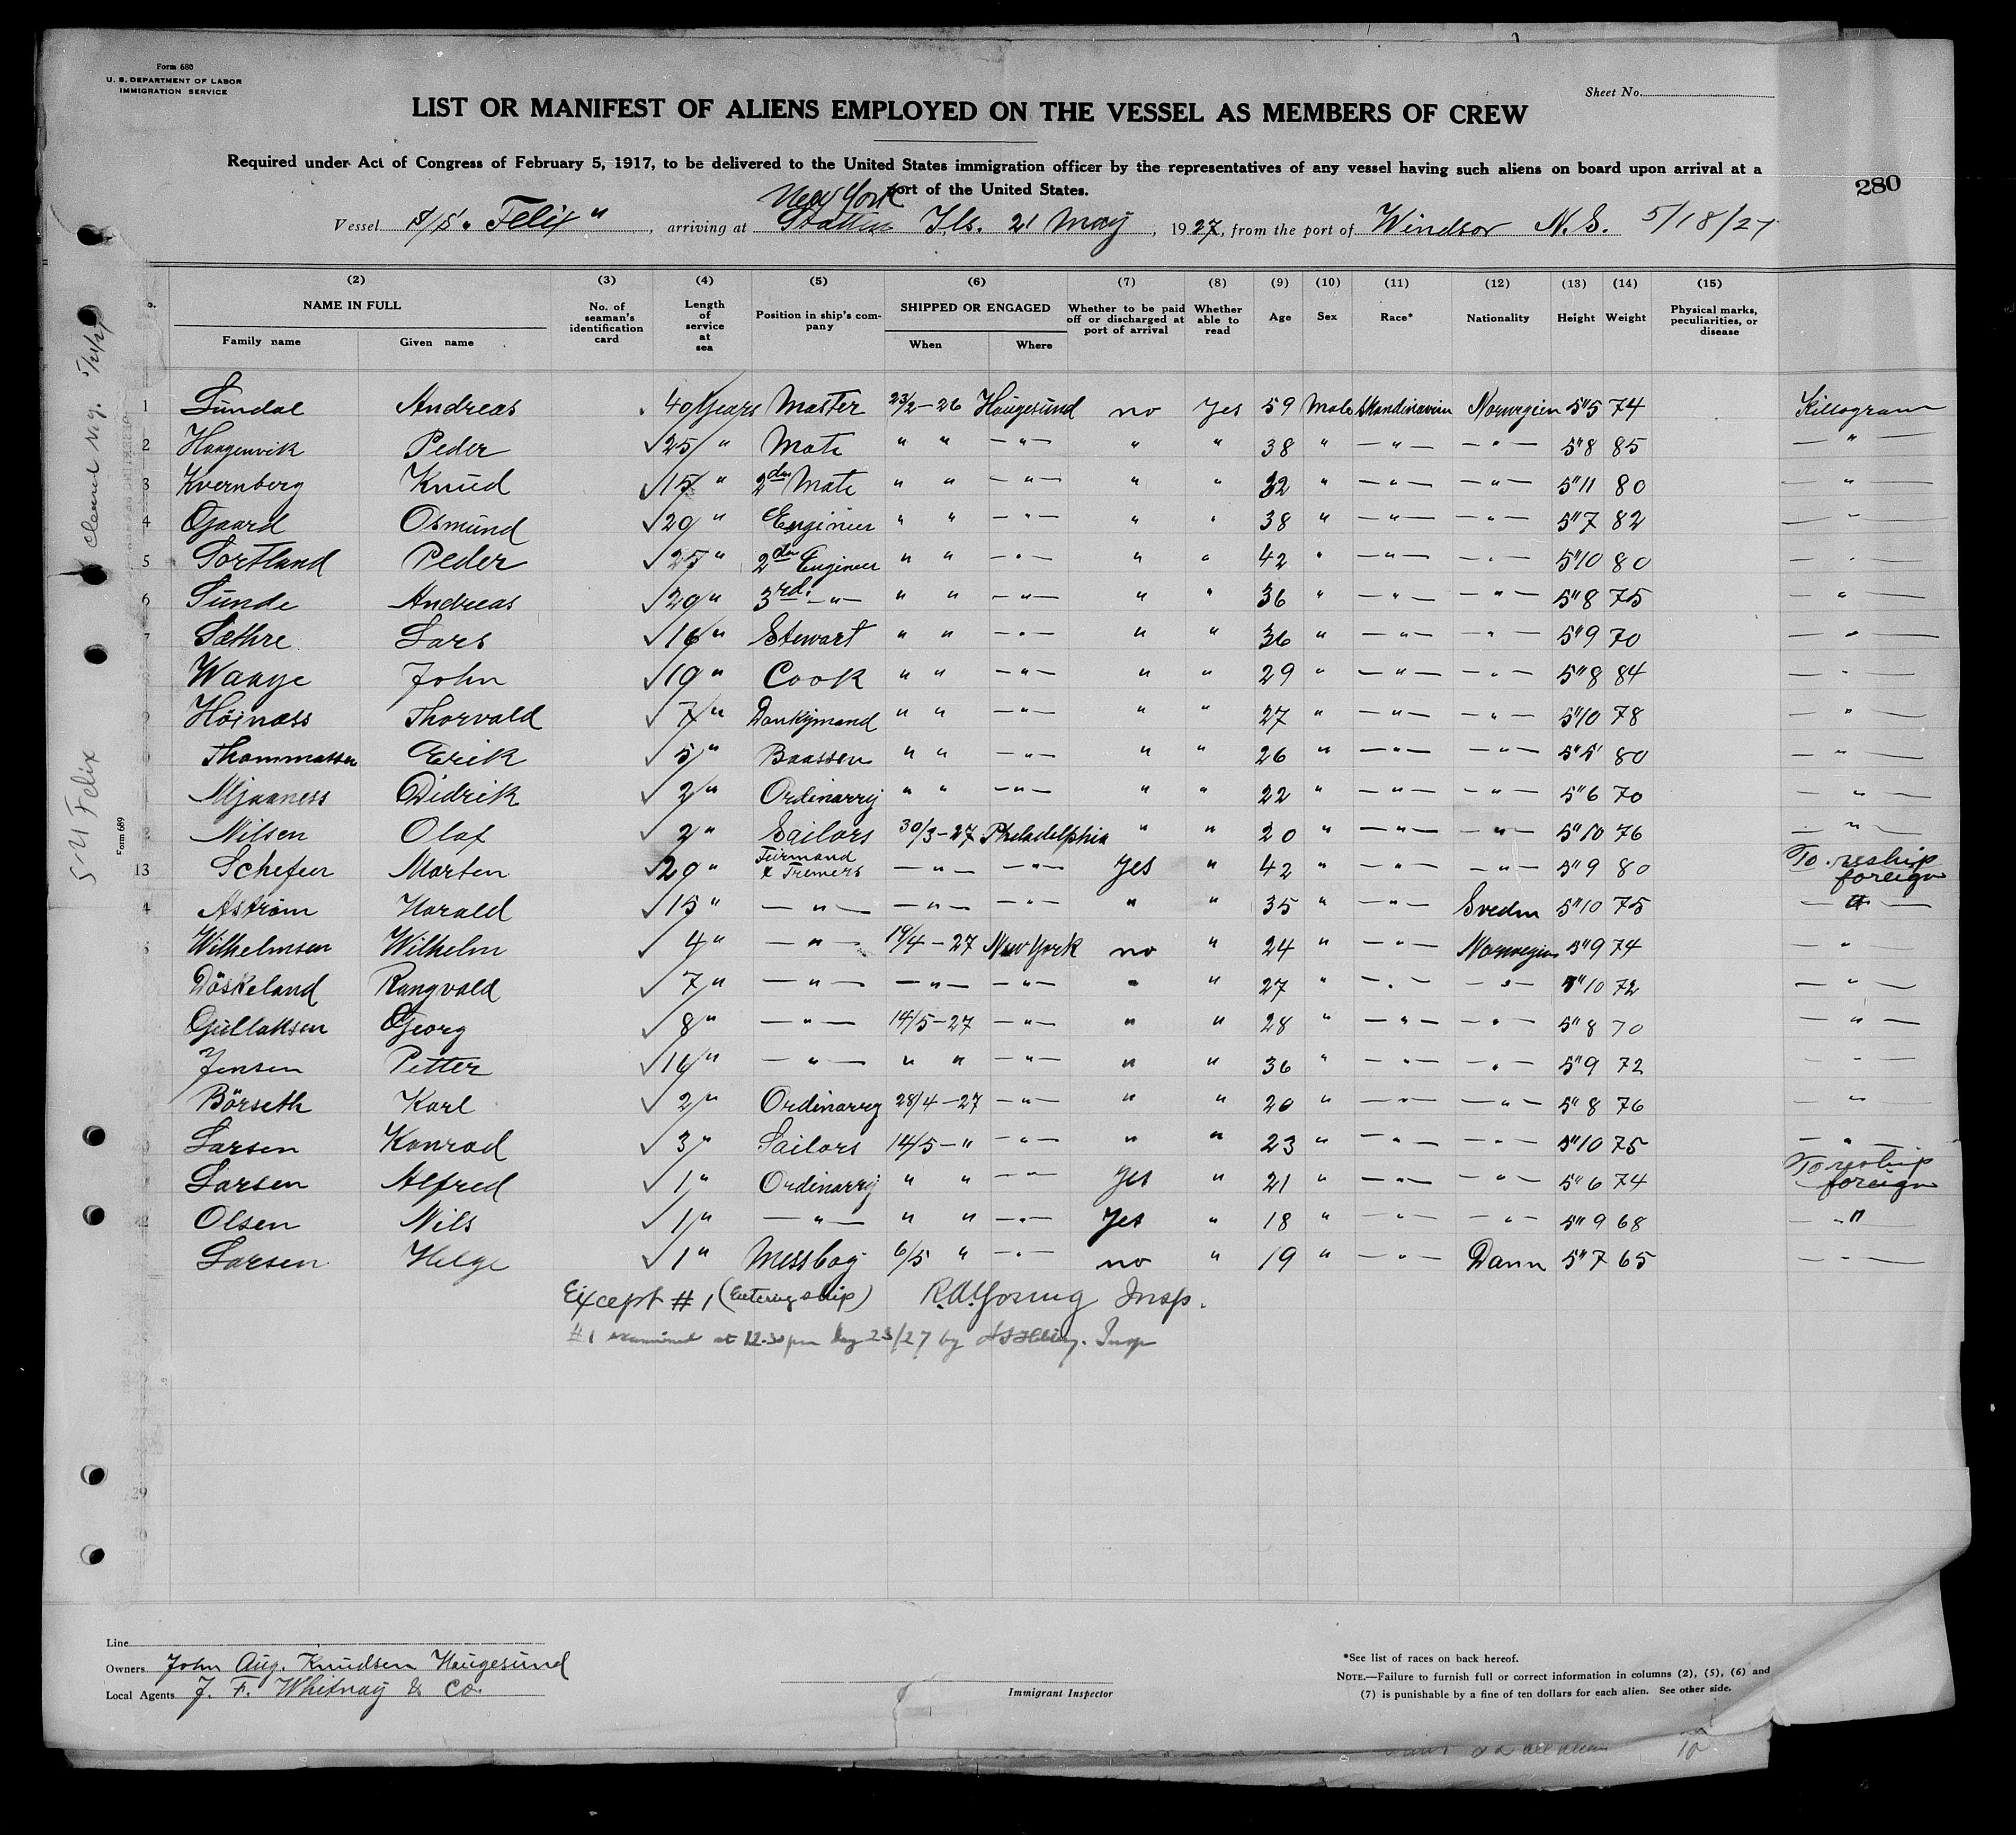 Form 680
U. S. DEPARTMENT OF LABOR
IMMIGRATION SERVICE
Sheet No.
LIST OR MANIFEST OF ALIENS EMPLOYED ON THE VESSEL AS MEMBERS OF CREW
Required under Act of Congress of February 5, 1917, to be delivered to the United States immigration officer by the representatives of any vessel having such aliens on board upon arrival at a
port of the United States.
280
New York
Vessel S/S. "Felix", arriving at Statten Ils. 21 May, 1927, from the port of Windsor N.S. 5/18/27
(2) (3) (4) (5) (6) (7) (8) (9) (10) (11) (12) (13) (14) (15)
NAME IN FULL No. of seaman's identification card Length of service at sea Position in ship's company SHIPPED OR ENGAGED Whether to be paid off or discharged at port of arrival Whether able to read Age Sex Race* Nationality Height Weight Physical marks, peculiarities, or disease
Family name Given name When Where
1 Sundal Andreas 40 Years Master 23/2-26 Haugesund no Yes 59 Male Skandinavien Norwegien 5"5 74 Killogram
2 Haagenvik Peder ✓25 " Mate " " —"— " " 38 " —"— —"— 5"8 85 —"—
3 Kvernberg Knud ✓15 " 2dn Mate " " —"— " " 32 " —"— —"— 5"11 80 —"—
4 Gaard Osmund ✓20 " Engineer " " —"— " " 38 " —"— —"— 5"7 82 —"—
5 Sortland Peder ✓25 " 2dn Engineer " " —"— " " 42 " —"— —"— 5"10 80 —"—
6 Sunde Andreas ✓20 " 3rd. —"— " " —"— " " 36 " —"— —"— 5"8 75 —"—
7 Sæthre Lars ✓16 " Stewart " " —"— " " 36 " —"— —"— 5"9 70 —"—
Waage John ✓10 " Cook " " —"— " " 29 " —"— —"— 5"8 84 —"—
9 Höinæss Thorvald ✓7 " Donkymand " " —"— " " 27 " —"— —"— 5"10 78 —"—
Thommassen Erik ✓5 " Baassen " " —"— " " 26 " —"— —"— 5"5 80 —"—
Mjaaness Didrik ✓2 " Ordinarry " " —"— " " 22 " —"— —"— 5"6 70 —"—
2 Nilsen Olaf ✓2 " Sailors 30/3-27 Philadelphia " " 20 " —"— —"— 5"10 76 —"—
13 Schefer Morten ✓20 " Feirmand & Tremers —"— —"— Yes " 42 " —"— —"— 5"9 80 To reship foreign
4 Aström Harald ✓15 " —"— —"— —"— " " 35 " —"— Svedn 5"10 75 —"—
Wilhelmsen Wilhelm ✓4 " —"— 19/4-27 New York no " 24 " —"— Norwegien 5"9 74 —"—
Döskeland Rangvald ✓7 " —"— —"— —"— " " 27 " —"— —"— 5"10 72 —"—
Gullaksen Georg ✓8 " —"— 14/5-27 —"— " " 28 " —"— —"— 5"8 70 —"—
Jensen Petter ✓16 " —"— " " —"— " " 36 " —"— —"— 5"9 72 —"—
Börseth Karl ✓2 " Ordinarry 28/4-27 —"— " " 20 " —"— —"— 5"8 76 —"—
Larsen Konrad ✓3 " Sailors 14/5-" —"— " " 23 " —"— —"— 5"10 75 —"—
Larsen Alfred ✓1 " Ordinarry " " —"— Yes " 21 " —"— —"— 5"6 74 To reship foreign
Olsen Nils ✓1 " —"— " " —"— Yes " 18 " —"— —"— 5"9 68 —"—
Larsen Helge ✓1 " Messboy 6/5 " —"— no " 19 " —"— Dann 5"7 65 —"—
Except # 1 (Entering ship) R.A. Young Insp.
#1 examined at 12.30 pm May 23/27 by Insp
29
5-21 Felix
5/21/27
Form 689
Line
Owners John Aug. Knudsen Haugesund
Local Agents J. F. Whitnay & Co.
Immigrant Inspector
*See list of races on back hereof.
NOTE.—Failure to furnish full or correct information in columns (2), (5), (6) and
(7) is punishable by a fine of ten dollars for each alien. See other side.